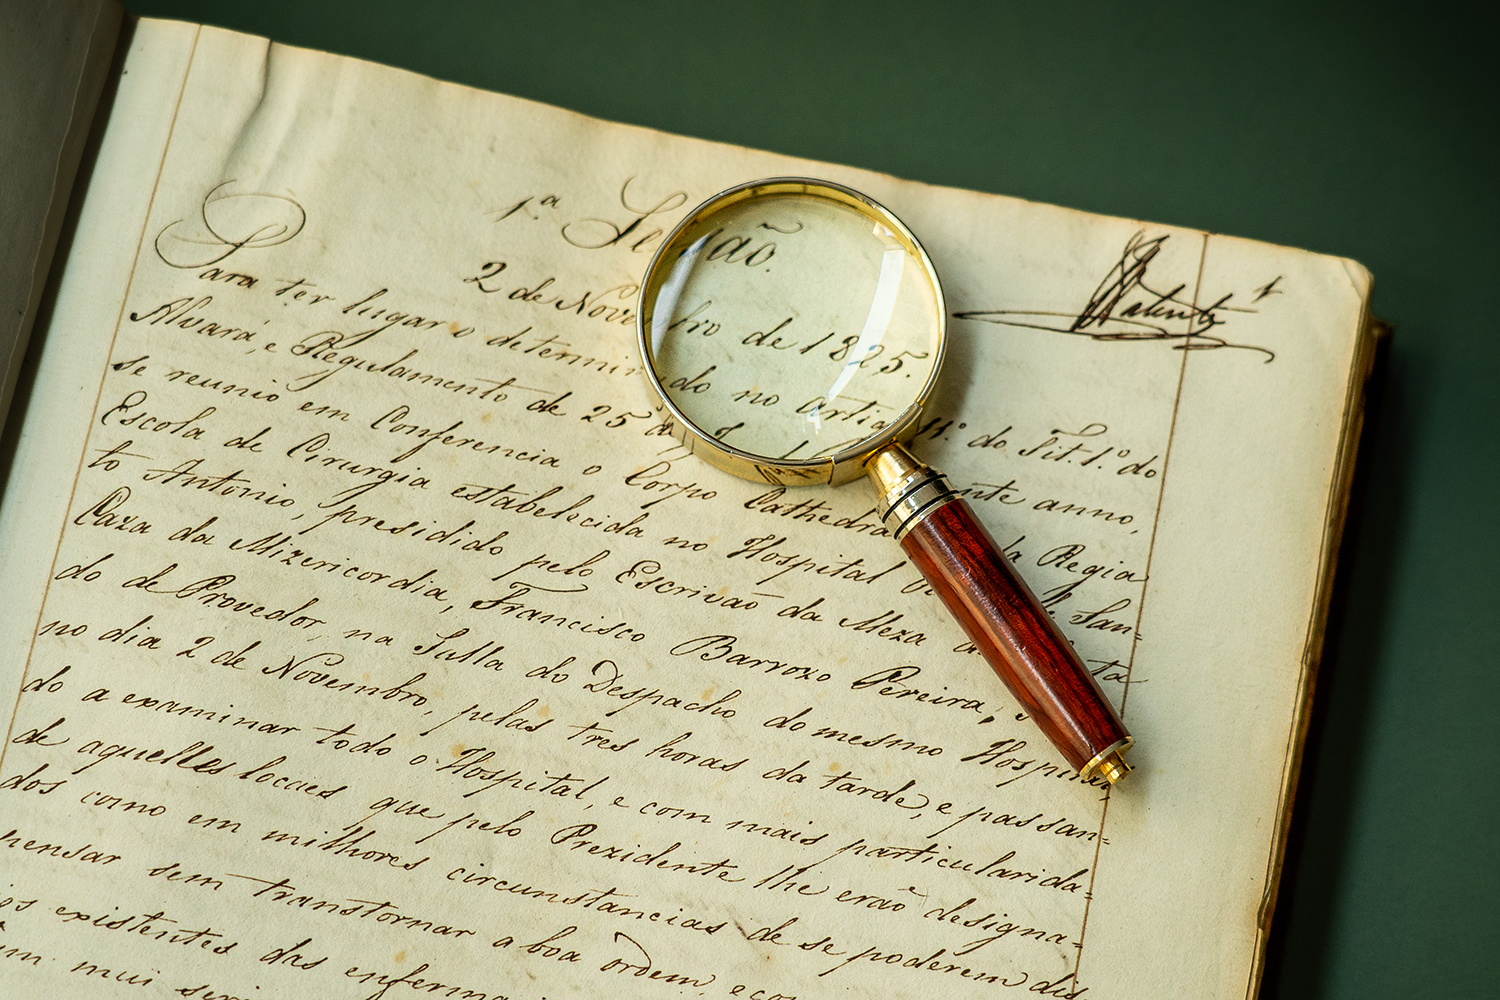 1.ª Sessão.
Valente 1
2 de Novembro de 1825.
Para ter lugar o determinado no artigo 11.º do Tit. 1.º do
Alvará, e Regulamento de 25 de anno,
se reunio em Conferencia o Corpo Cathedra da Regia
Escola de Cirurgia estabelecida no Hospital de San-
to Antonio, presidido pelo Escrivaõ da Meza da
Caza da Mizericordia, Francisco Barrozo Pereira,
do de Provedor, na Salla do Despacho do mesmo Hospital,
no dia 2 de Novembro, pelas tres horas da tarde, e passan-
do a examinar todo o Hospital, e com mais particularida-
de aquelles locaes que pelo Prezidente lhe eraõ designa-
dos como em milhores circunstancias de se poderem dis-
pensar sem transtornar a boa ordem, e
existentes das
mui